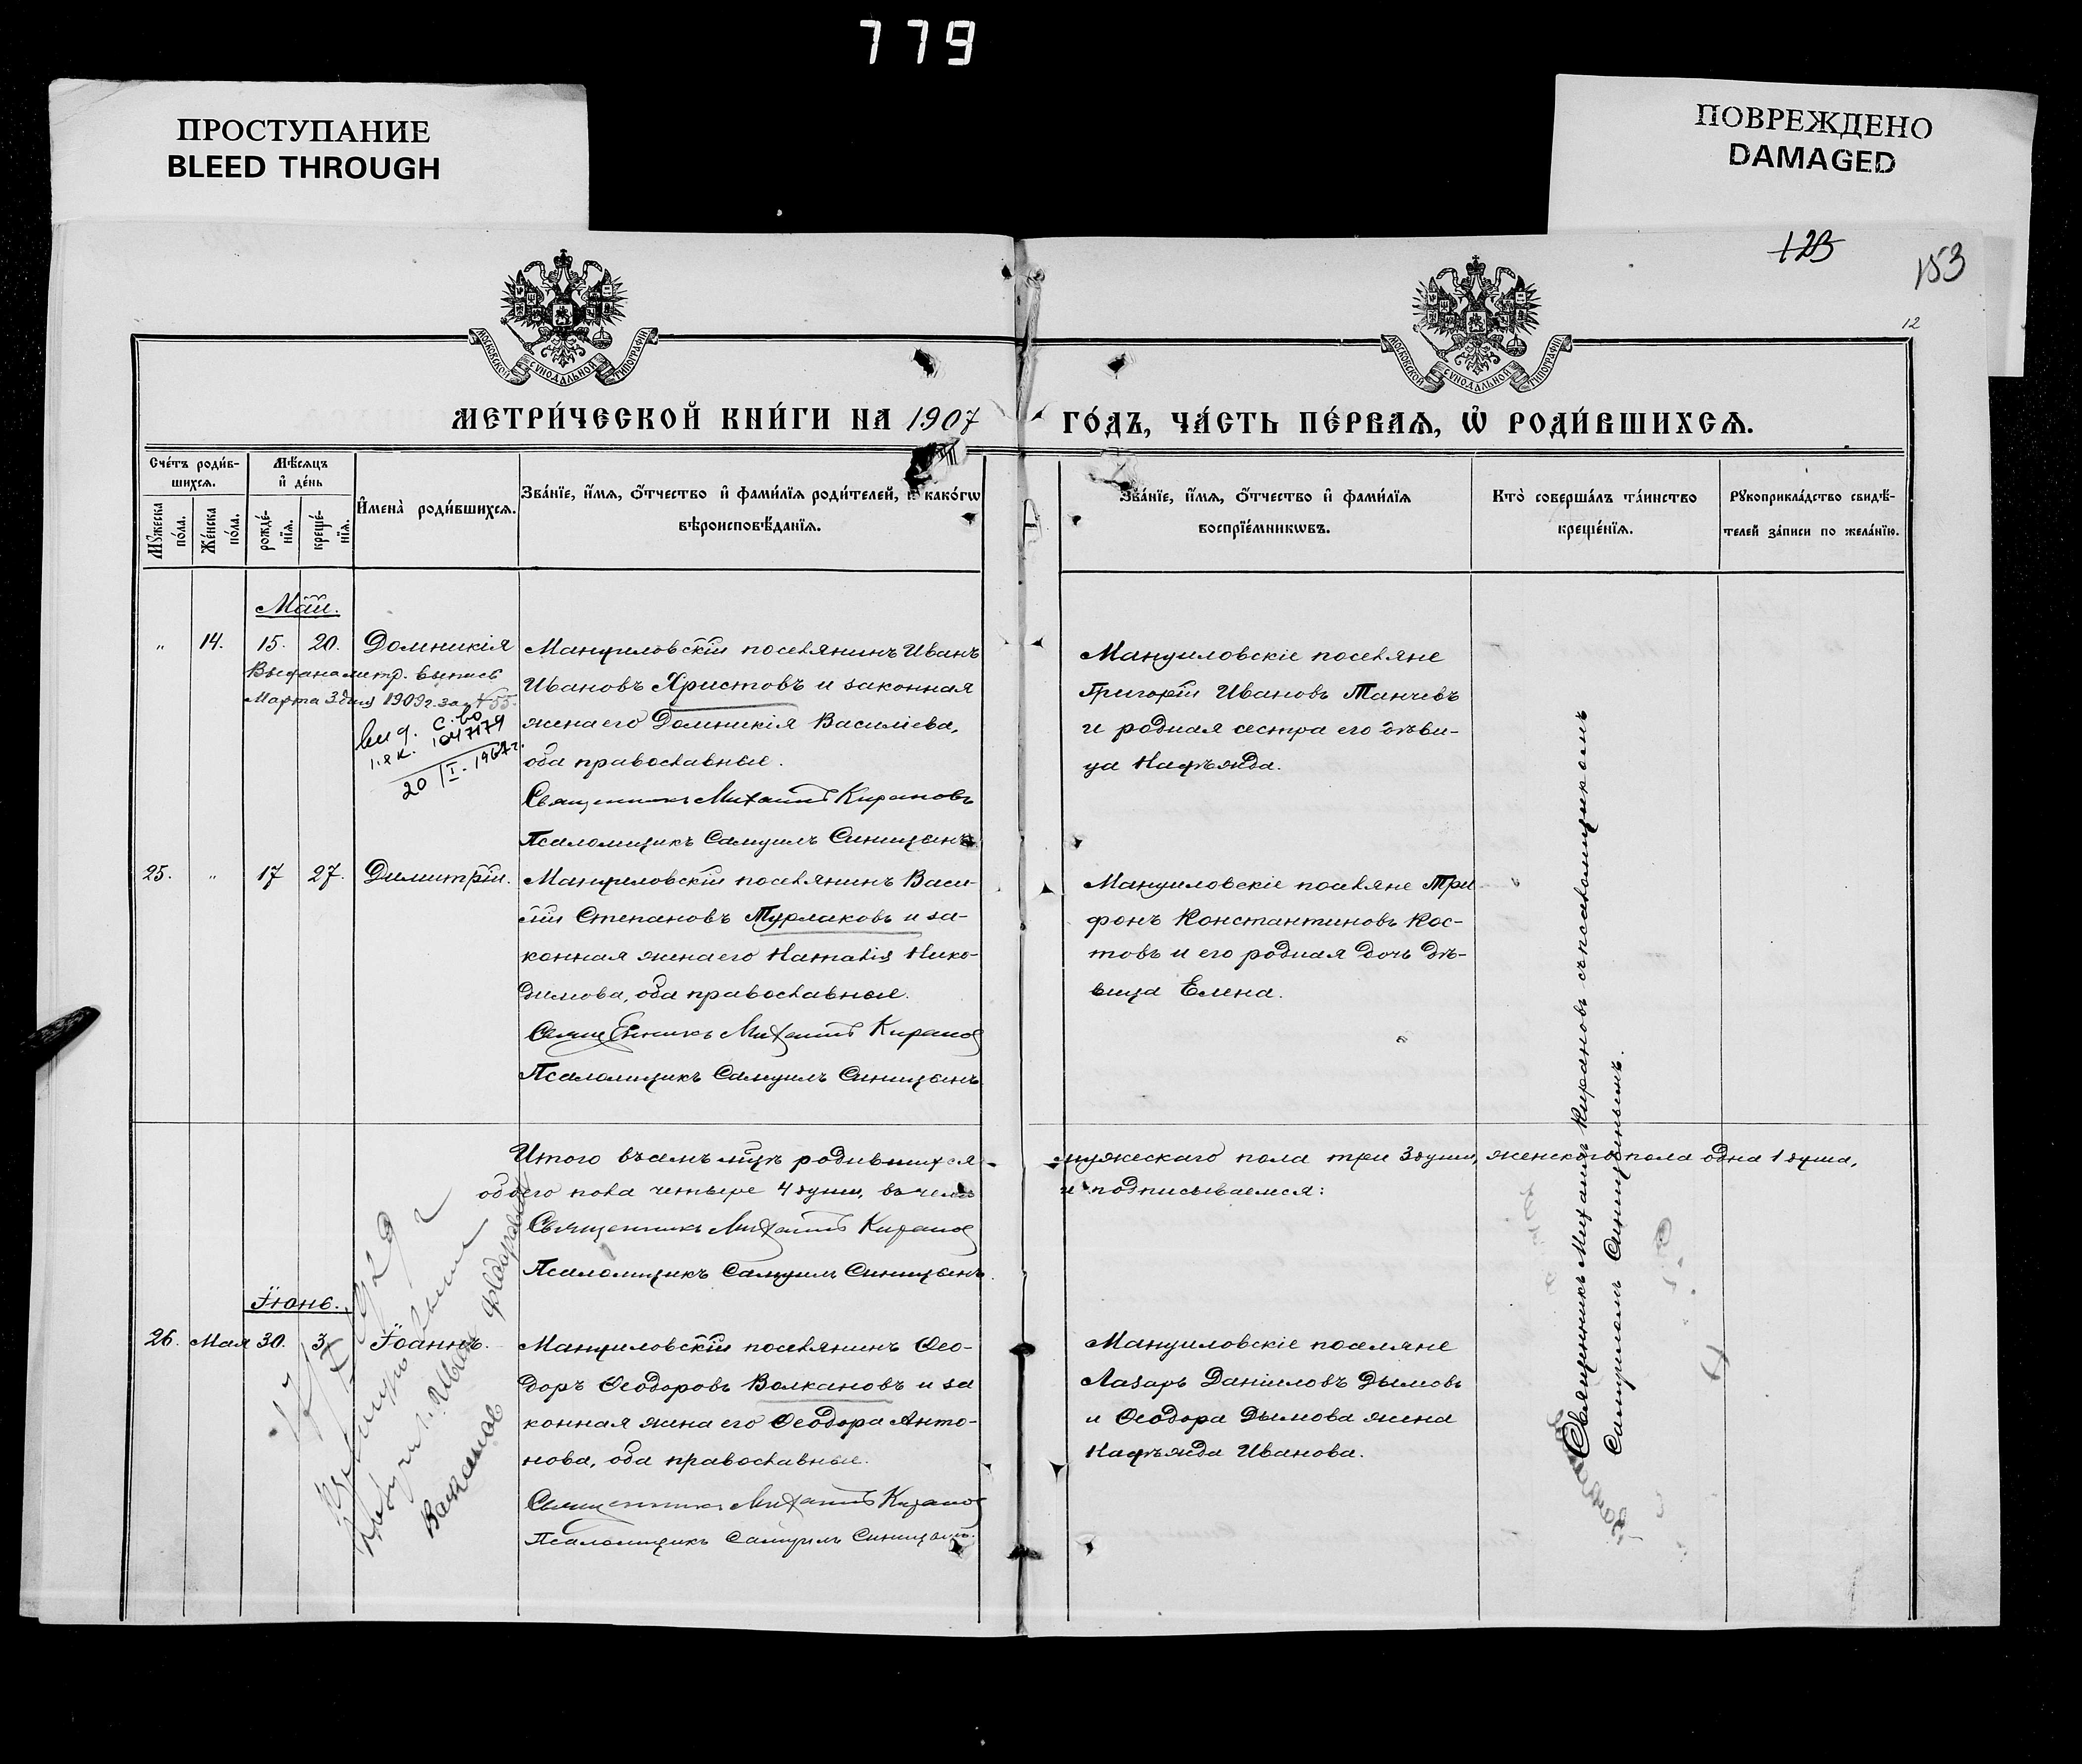 779
ПРОСТУПАНИЕ
BLEED THROUGH
ПОВРЕЖДЕНО
DAMAGED
123
153
12
МОСКОВСКОЙ СѴНОДАЛЬНОЙ ТИПОГРАФІИ
МОСКОВСКОЙ СѴНОДАЛЬНОЙ ТИПОГРАФІИ
МЕТРИ́ЧЕСКОЙ КНИ́ГИ НА 1907 ГО́ДЪ, ЧА́СТЬ ПЕ́РВАѦ, Ѡ РОДИ́ВШИХСѦ.
Сче́тъ роди́в-
шихсѧ.
Мужеска по́ла.
Же́нска по́ла.
Мѣ́сѧцъ
и де́нь
рожде́-
нїѧ.
креще́-
нїѧ.
Имена̀ роди́вшихсѧ.
Зва́нїе, и́мѧ, о́тчество и фами́лїѧ роди́телей, и како́гѡ
вѣроисповѣ́данїѧ.
Зва́нїе, и́мѧ, о́тчество и фами́лїѧ
воспрїе́мникѡвъ.
Кто̀ соверша́лъ та́инство
креще́нїѧ.
Рукоприкла́дство свидѣ́-
телей за́писи по жела́нїю.
Май.
" 14. 15. 20. Домникія
Выдана метр. выпись
Марта 3 дня 1909 г. за № 55.
выд. с. во
1047179
20/I-1967 г.
Мануиловскій поселянинъ Иванъ
Ивановъ Христовъ и законная
жена его Домникія Василіева,
оба православные.
Священникъ Михаилъ Кирановъ
Псаломщикъ Самуилъ Синицынъ
Мануиловскіе поселяне
Григорій Ивановъ Танчевъ
и родная сестра его дѣви-
ца Надѣжда.
25. " 17 27. Димитрій.
Мануиловскій поселянинъ Васи-
лій Степановъ Турлаковъ и за-
конная жена его Наталія Нико-
димова, оба православные.
Священникъ Михаилъ Киранов
Псаломщикъ Самуилъ Синицынъ
Мануиловскіе поселяне Три
фонъ Константиновъ Кос-
товъ и его родная дочь дѣ-
вица Елена.
Итого въ семъ м-цѣ родившихся
обоего пола четыре 4 души, въ чемъ
мужескаго пола три 3 души, женскаго пола одна 1 душа,
и подписываемся:
Священникъ Михаилъ Киранов
Псаломщикъ Самуилъ Синицынъ.
Іюнь.
26. Мая 30. 3. Іоаннъ.
1929 г
Иван Федорович
Волканов
Мануиловскій поселянинъ Ѳео-
доръ Ѳеодоровъ Волкановъ и за
конная жена его Ѳеодора Анто-
нова, оба православные.
Священникъ Михаилъ Киранов
Псаломщикъ Самуилъ Синицынъ.
Мануиловскіе поселяне
Лазарь Даніиловъ Дымовъ
и Ѳеодора Дымова жена
Надѣжда Иванова.
Священникъ Михаилъ Кирановъ съ псаломщикомъ
Самуиломъ Синицынымъ.